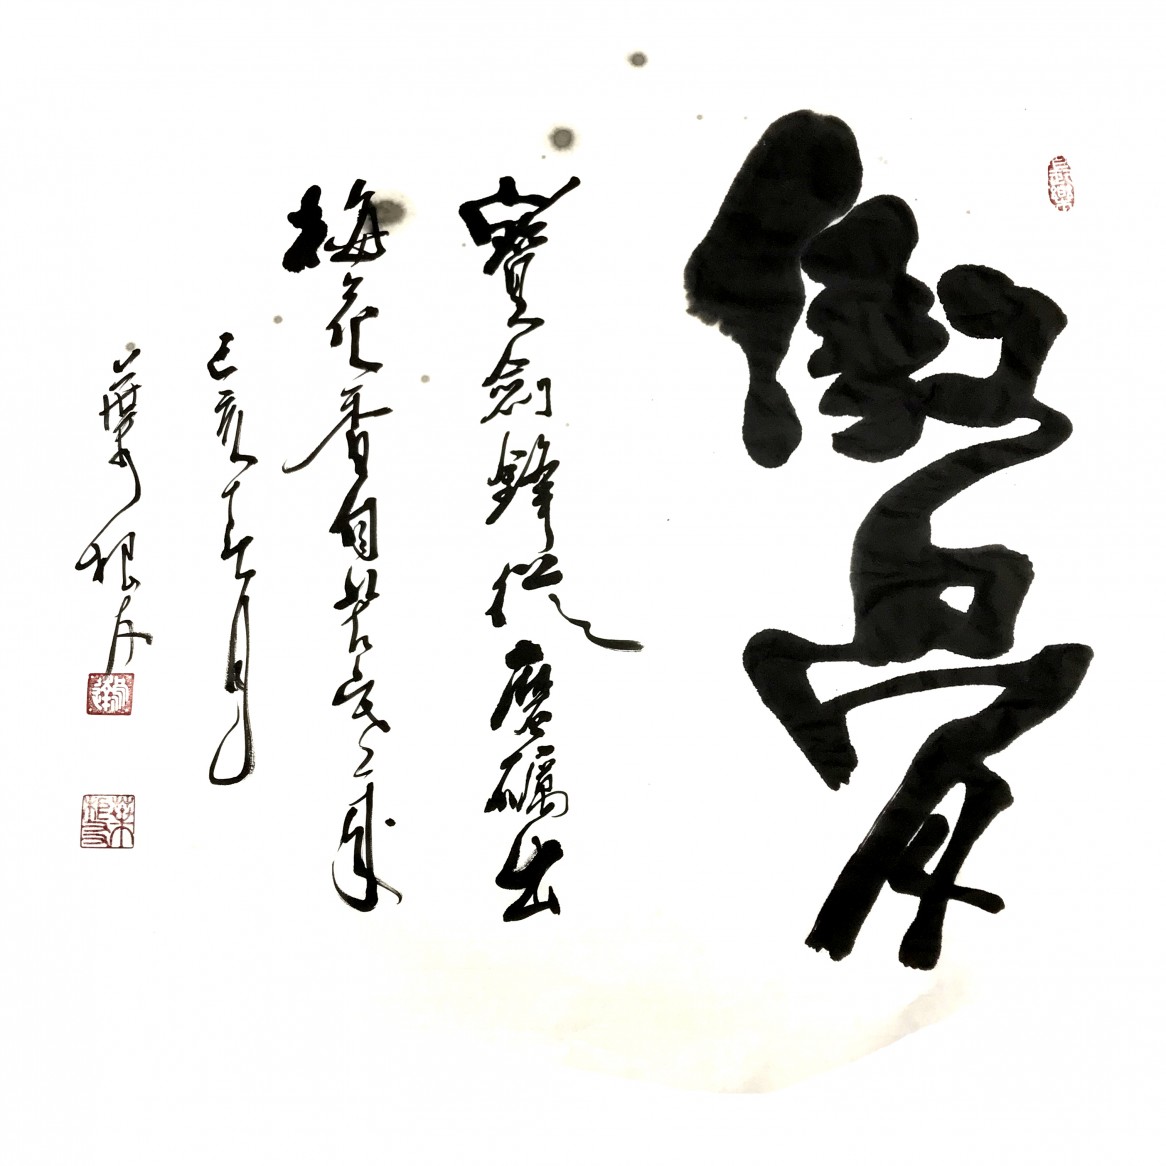 傲骨
寶劍鋒從磨礪出
梅花香自苦寒來
己亥春月
葉根友